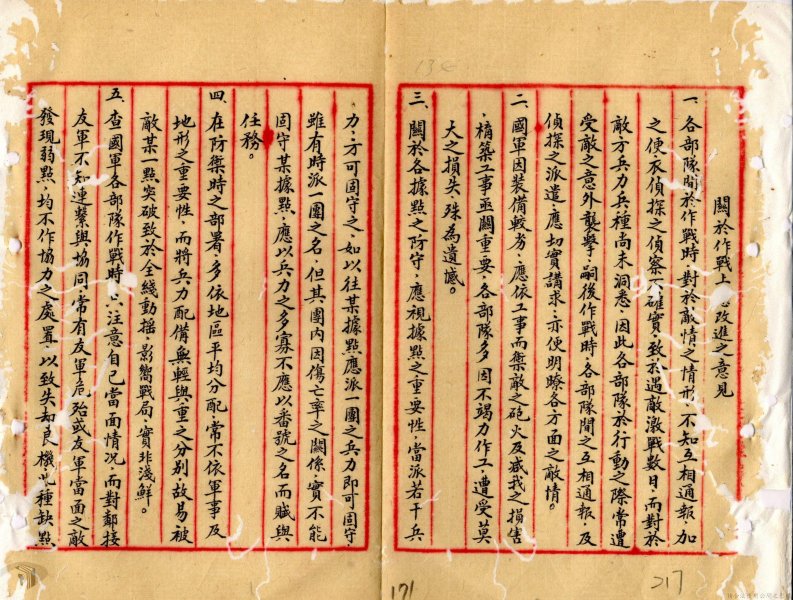 關於作戰上改進之意見
一、各部隊間於作戰時、對於敵情之情形、不知互相通報加
之便衣偵探之偵察確實致遇敵激戰數日、而對於
敵方兵力兵種尚未洞悉、因此各部隊於行動之際常遭
受敵之意外襲擊、嗣後作戰時、各部隊間之互相通報及
偵探之派遣、應切實講求、亦便明瞭各方面之敵情。
二、國軍因裝備較劣、應依工事而禦敵之砲火及減我之損害
、構築工事亟關重要、各部隊多因不竭力作工、遭受莫
大之損失、殊為遺憾。
三、關於各據點之防守、應視據點之重要性、當派若干兵
力、方可固守之、如以往某據點應派一團之兵力即可固守、
雖有時派一團之名、但其團內因傷亡率之關係、實不能
固守某據點、應以兵力之多寡不應以番號之名而賦與
任務。
四、在防禦時之部署、多依地區平均分配、常不依軍事及
地形之重要性、而將兵力配備無輕與重之分別、故易被
敵某一點突破致於全綫動搖、影響戰局、實非淺鮮。
五、查國軍各部隊作戰時、注意自己當面情况、而對鄰接
友軍不知連繫與協同、常有友軍危殆或友軍當面之敵
發現弱點、均不作協力之處置、以致失却良機此種缺點
171
217